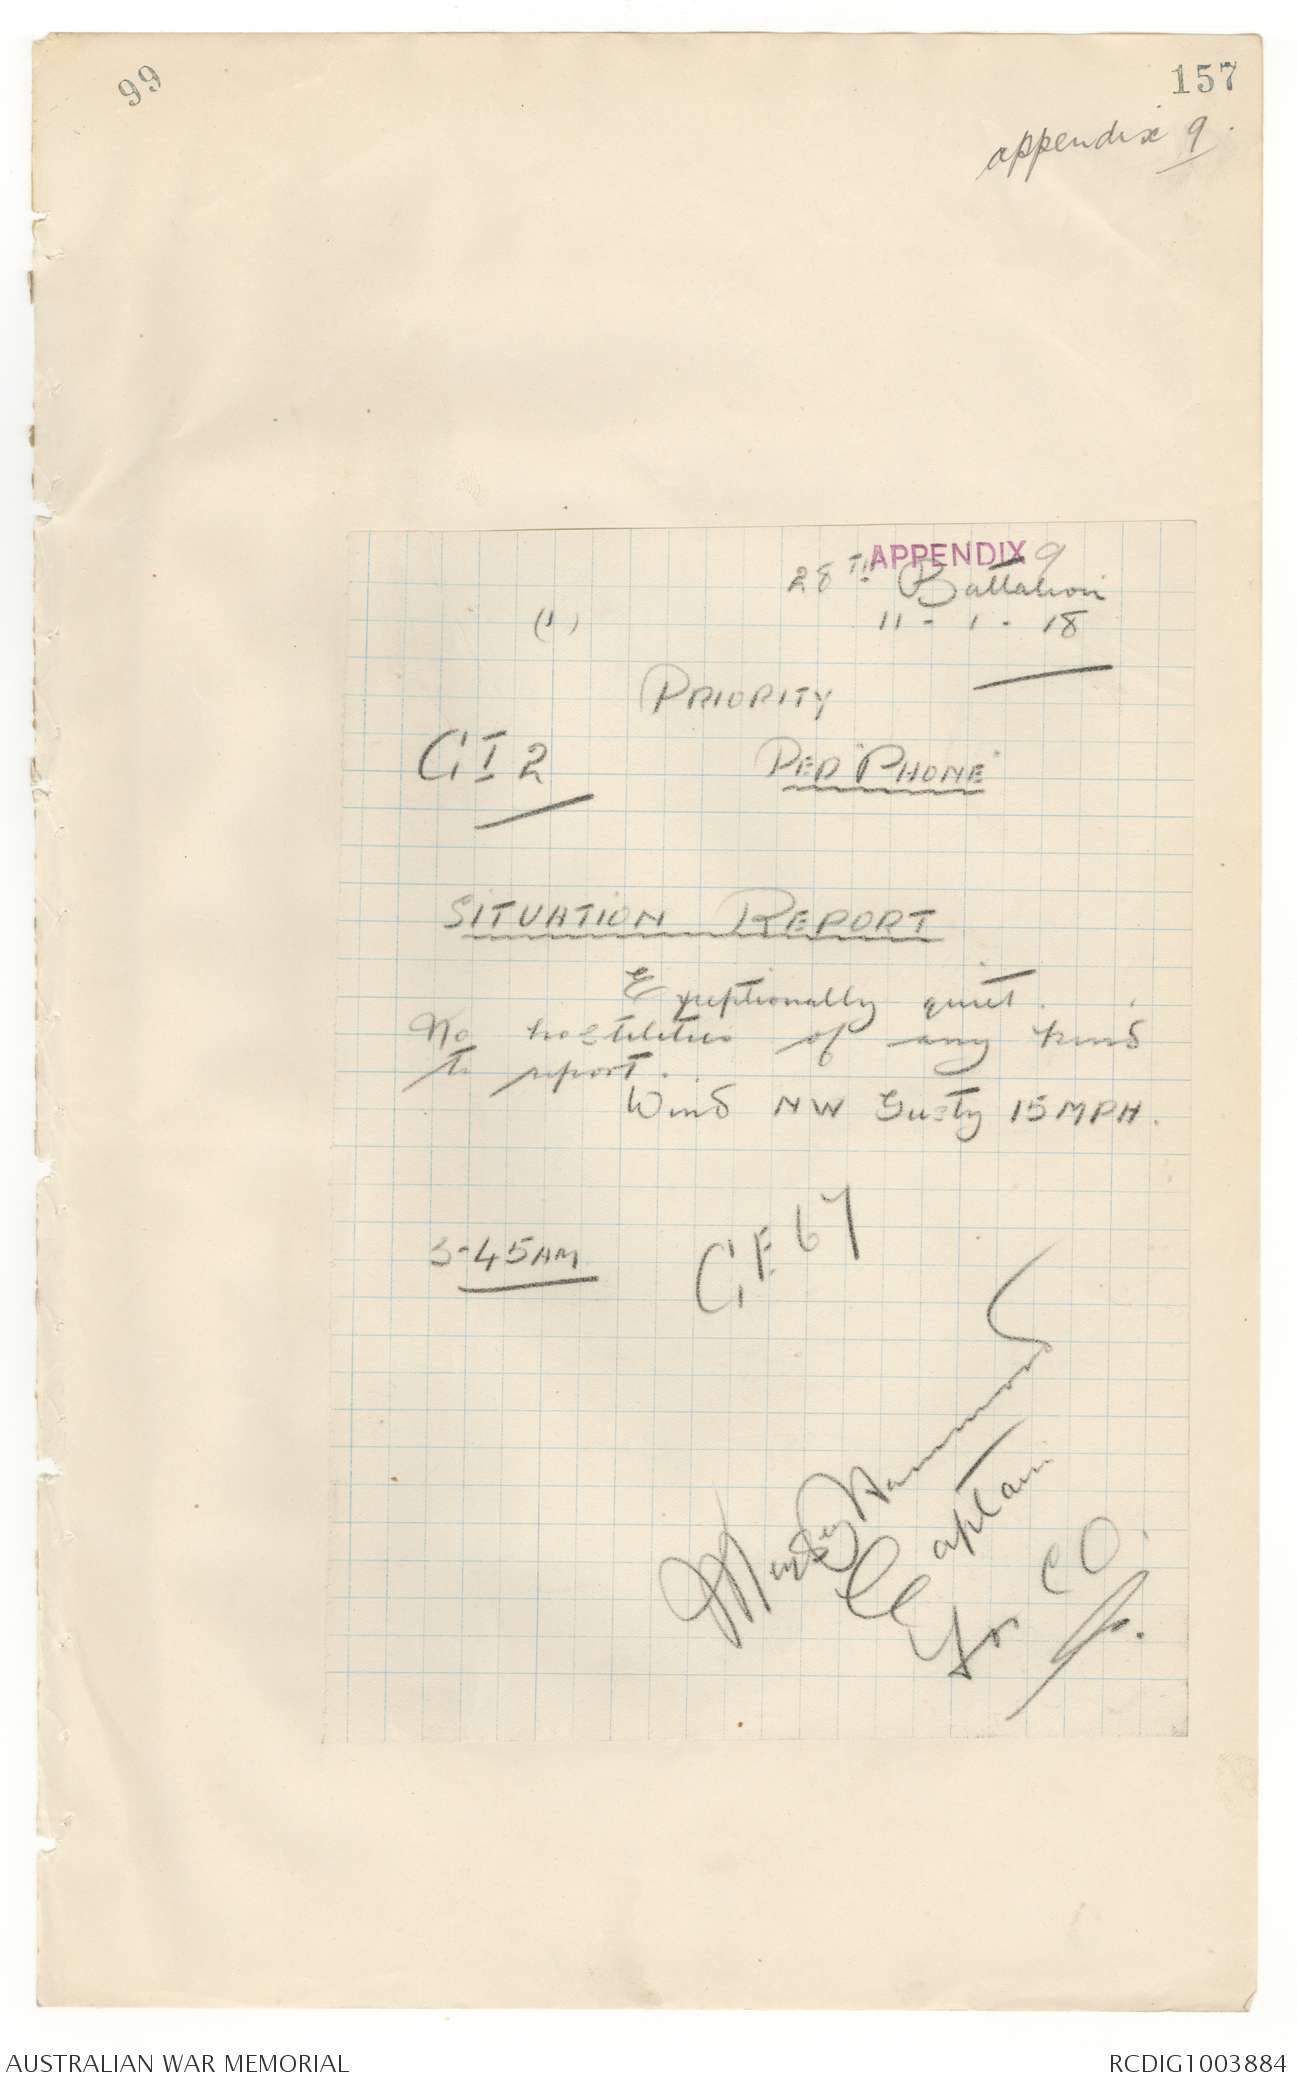 99
157
appendix 9.
APPENDIX 9
28TH Battalion
(1)
11-1-18
PRIORITY
GI 2
PER "PHONE"
SITUATION REPORT
Exceptionally quiet.
No hostilities of any kind
to report.
Wind NW Gusty 15 MPH.
3-45 AM
GE 67
Captain
for CO.
AUSTRALIAN WAR MEMORIAL
RCDIG1003884